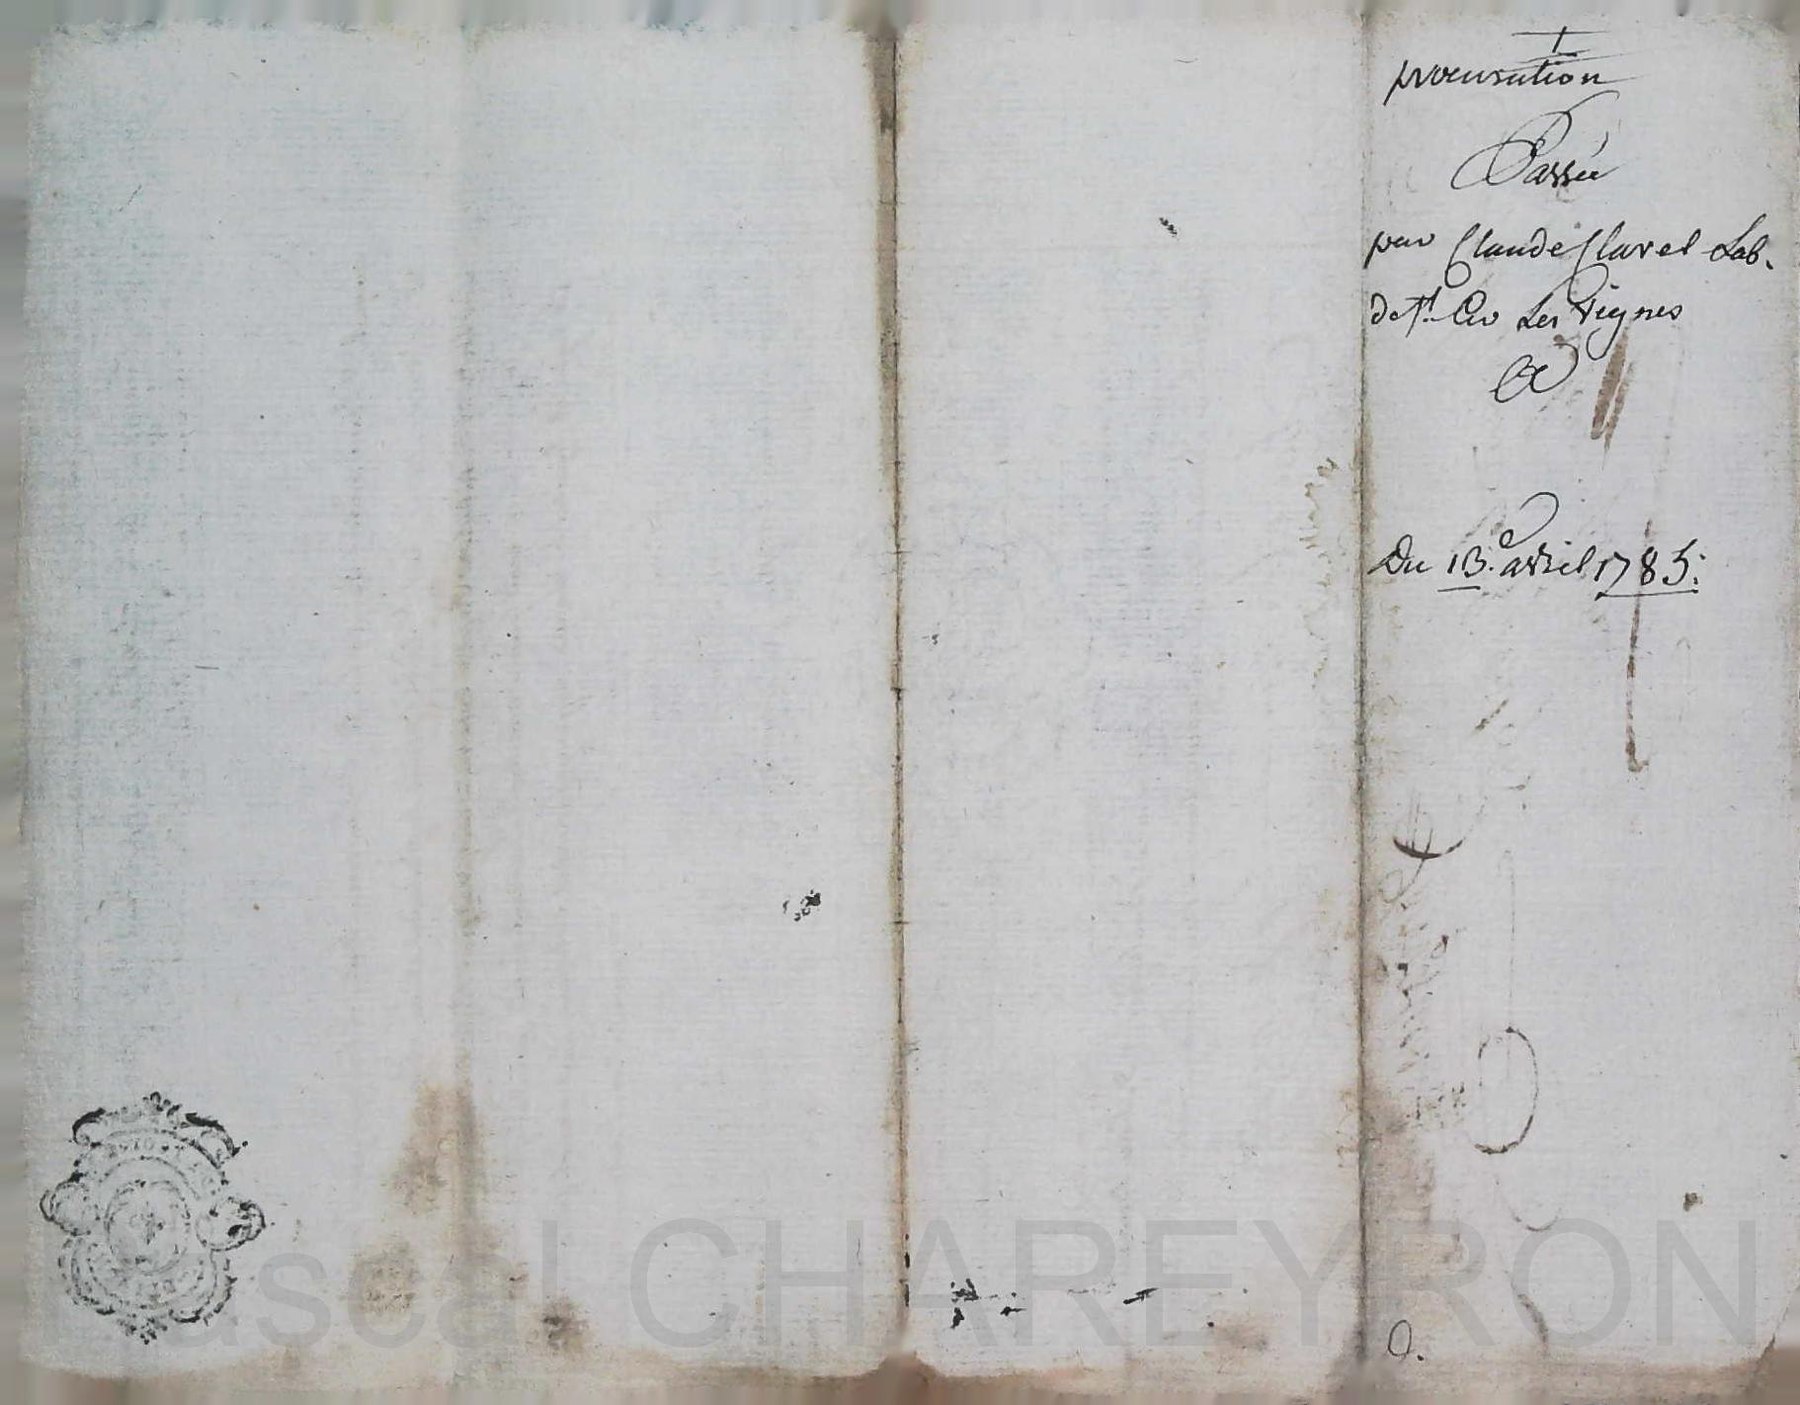 procuration
Passée
par Claude Clavel Lab.
de St. Cir Les Vignes
Du 13. avril 1785.
ascal CHAREYRON